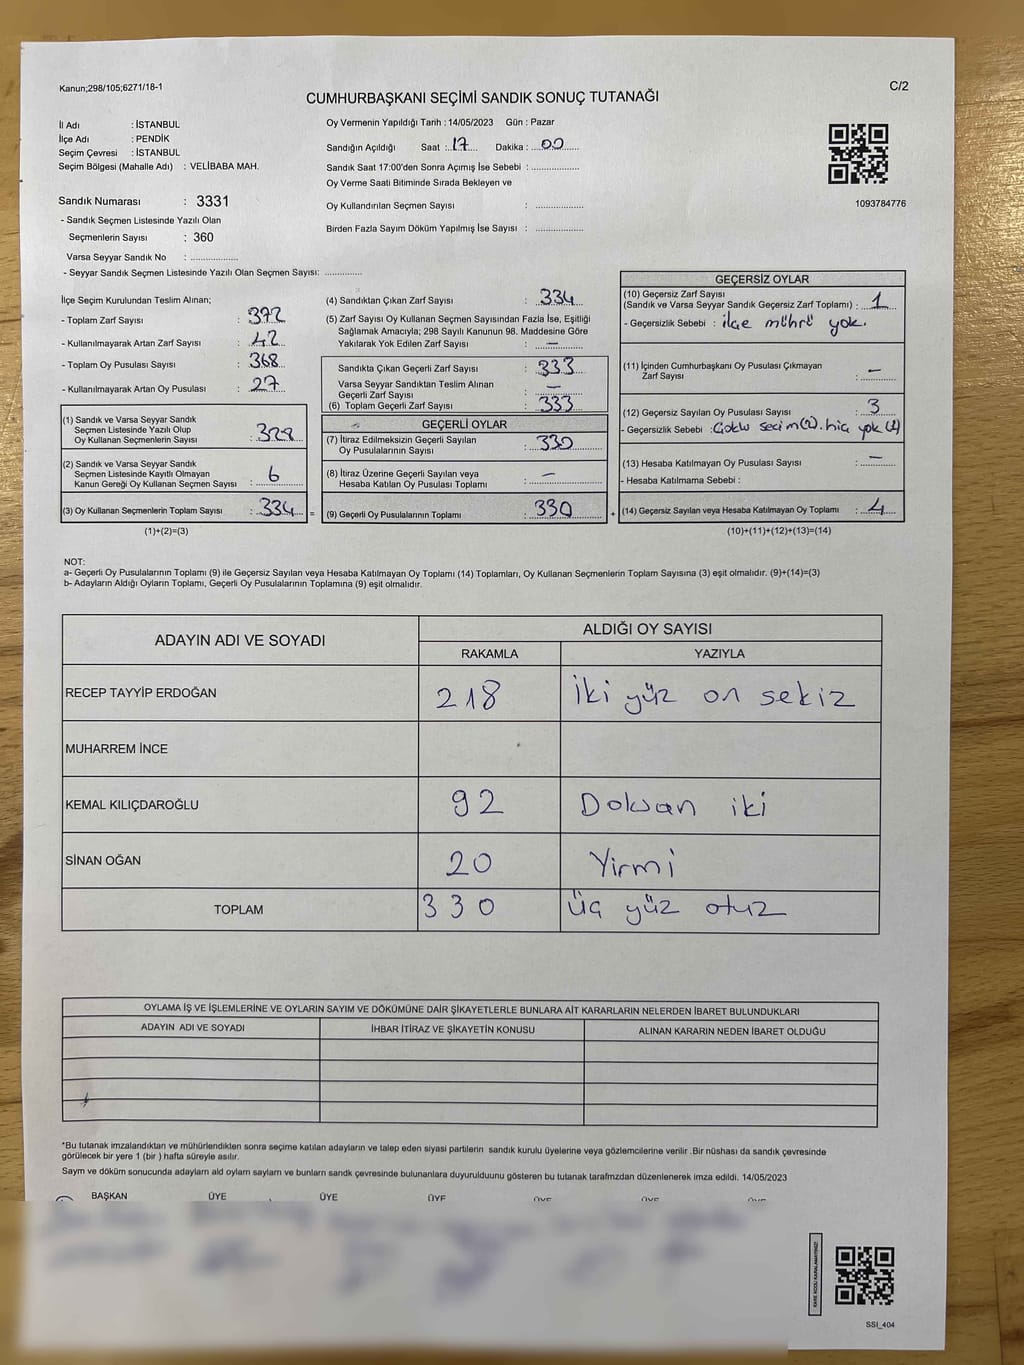 Kanun;298/105;6271/18-1
C/2
CUMHURBAŞKANI SEÇİMİ SANDIK SONUÇ TUTANAĞI
İl Adı : İSTANBUL
İlçe Adı : PENDİK
Seçim Çevresi : İSTANBUL
Seçim Bölgesi (Mahalle Adı) : VELİBABA MAH.
Sandık Numarası : 3331
- Sandık Seçmen Listesinde Yazılı Olan
Seçmenlerin Sayısı : 360
Varsa Seyyar Sandık No : ................
- Seyyar Sandık Seçmen Listesinde Yazılı Olan Seçmen Sayısı: ............
Oy Vermenin Yapıldığı Tarih : 14/05/2023 Gün : Pazar
Sandığın Açıldığı Saat : 17 Dakika : 00
Sandık Saat 17:00'den Sonra Açımış İse Sebebi : ................
Oy Verme Saati Bitiminde Sırada Bekleyen ve
Oy Kullandırılan Seçmen Sayısı : ................
Birden Fazla Sayım Döküm Yapılmış İse Sayısı : ................
1093784776
İlçe Seçim Kurulundan Teslim Alınan;
- Toplam Zarf Sayısı : 372
- Kullanılmayarak Artan Zarf Sayısı : 42
- Toplam Oy Pusulası Sayısı : 368
- Kullanılmayarak Artan Oy Pusulası : 27
(1) Sandık ve Varsa Seyyar Sandık
Seçmen Listesinde Yazılı Olup
Oy Kullanan Seçmenlerin Sayısı : 328
(2) Sandık ve Varsa Seyyar Sandık
Seçmen Listesinde Kayıtlı Olmayan
Kanun Gereği Oy Kullanan Seçmen Sayısı : 6
(3) Oy Kullanan Seçmenlerin Toplam Sayısı : 334 =
(1)+(2)=(3)
(4) Sandıktan Çıkan Zarf Sayısı : 334
(5) Zarf Sayısı Oy Kullanan Seçmen Sayısından Fazla İse, Eşitliği
Sağlamak Amacıyla; 298 Sayılı Kanunun 98. Maddesine Göre
Yakılarak Yok Edilen Zarf Sayısı : —
Sandıkta Çıkan Geçerli Zarf Sayısı : 333
Varsa Seyyar Sandıktan Teslim Alınan
Geçerli Zarf Sayısı : —
(6) Toplam Geçerli Zarf Sayısı : 333
GEÇERLİ OYLAR
(7) İtiraz Edilmeksizin Geçerli Sayılan
Oy Pusulalarının Sayısı : 330
(8) İtiraz Üzerine Geçerli Sayılan veya
Hesaba Katılan Oy Pusulası Toplamı : —
(9) Geçerli Oy Pusulalarının Toplamı : 330 +
GEÇERSİZ OYLAR
(10) Geçersiz Zarf Sayısı
(Sandık ve Varsa Seyyar Sandık Geçersiz Zarf Toplamı) : 1
- Geçersizlik Sebebi : ilçe mührü yok.
(11) İçinden Cumhurbaşkanı Oy Pusulası Çıkmayan
Zarf Sayısı : —
(12) Geçersiz Sayılan Oy Pusulası Sayısı : 3
- Geçersizlik Sebebi : Çoklu seçim(2). hiç yok (1)
(13) Hesaba Katılmayan Oy Pusulası Sayısı : —
- Hesaba Katılmama Sebebi :
(14) Geçersiz Sayılan veya Hesaba Katılmayan Oy Toplamı : 4
(10)+(11)+(12)+(13)=(14)
NOT:
a- Geçerli Oy Pusulalarının Toplamı (9) ile Geçersiz Sayılan veya Hesaba Katılmayan Oy Toplamı (14) Toplamları, Oy Kullanan Seçmenlerin Toplam Sayısına (3) eşit olmalıdır. (9)+(14)=(3)
b- Adayların Aldığı Oyların Toplamı, Geçerli Oy Pusulalarının Toplamına (9) eşit olmalıdır.
ADAYIN ADI VE SOYADI
ALDIĞI OY SAYISI
RAKAMLA YAZIYLA
RECEP TAYYİP ERDOĞAN 218 İki yüz on sekiz
MUHARREM İNCE
KEMAL KILIÇDAROĞLU 92 Doksan iki
SİNAN OĞAN 20 Yirmi
TOPLAM 330 üç yüz otuz
OYLAMA İŞ VE İŞLEMLERİNE VE OYLARIN SAYIM VE DÖKÜMÜNE DAİR ŞİKAYETLERLE BUNLARA AİT KARARLARIN NELERDEN İBARET BULUNDUKLARI
ADAYIN ADI VE SOYADI İHBAR İTİRAZ VE ŞİKAYETİN KONUSU ALINAN KARARIN NEDEN İBARET OLDUĞU
*Bu tutanak imzalandıktan ve mühürlendikten sonra seçime katılan adayların ve talep eden siyasi partilerin sandık kurulu üyelerine veya gözlemcilerine verilir .Bir nüshası da sandık çevresinde
görülecek bir yere 1 (bir ) hafta süreyle asılır.
Sayım ve döküm sonucunda adayların ald oylarn saylarn ve bunlarn sandk çevresinde bulunanlara duyurulduunu gösteren bu tutanak tarafmzdan düzenlenerek imza edildi. 14/05/2023
BAŞKAN ÜYE ÜYE ÜYE ÜYE ÜYE ÜYE
KARE KODU KARALAMAYINIZ!
SSI_404